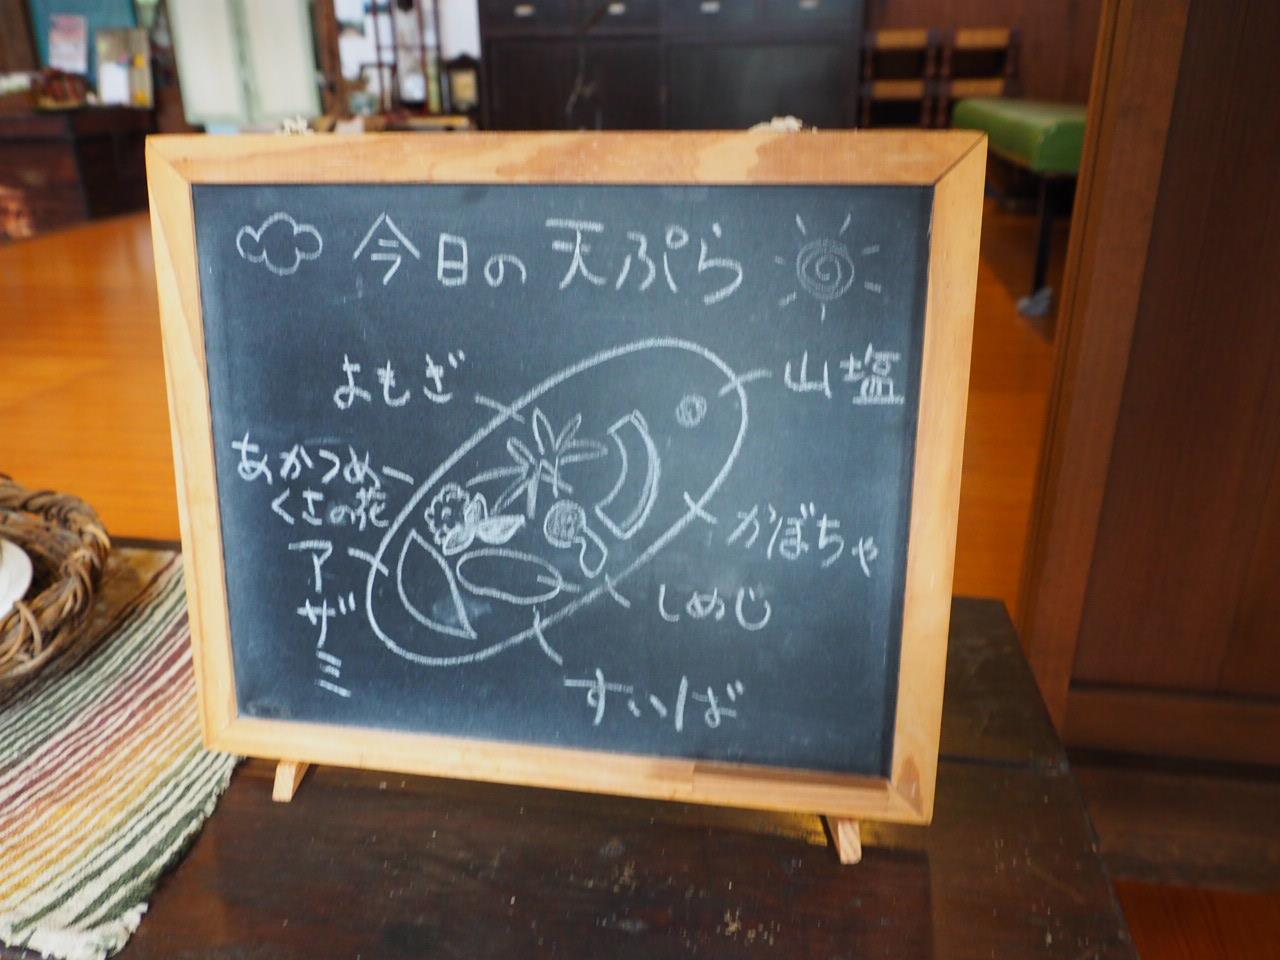 今日の天ぷら
よもぎ
山塩
あかつめ
くさの花
アザミ
かぼちゃ
しめじ
すいば